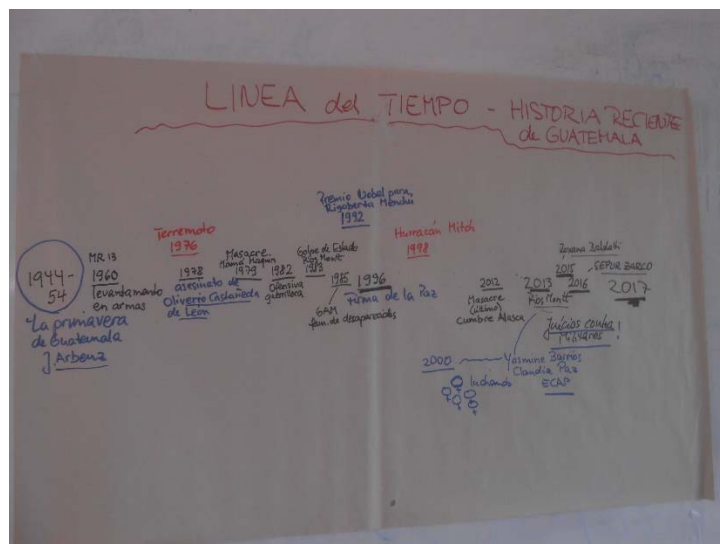 LINEA del TIEMPO - HISTORIA RECIENTE
de GUATEMALA
1944-
54
La primavera
de Guatemala
J. Arbenz
MR 13
1960
levantamento
en armas
Terremoto
1976
1978
asesinato de
Oliverio Castañeda
de León
Masacre
1979
1982
ofensiva
guerrillera
Golpe de Estado
Ríos Montt
1983
1985
GAM
fam. de desaparecidos
Premio Nobel para
Rigoberta Menchú
1992
1996
Firma de la Paz
Huracán Mitch
1998
2000
luchando
2012
Masacre
(último)
Cumbre Alaska
2013
Ríos Montt
Yasmine Barrios
Claudia Paz
ECAP
Baldetti
2015
SEPUR ZARCO
2016
Juicios contra
Militares!
2017